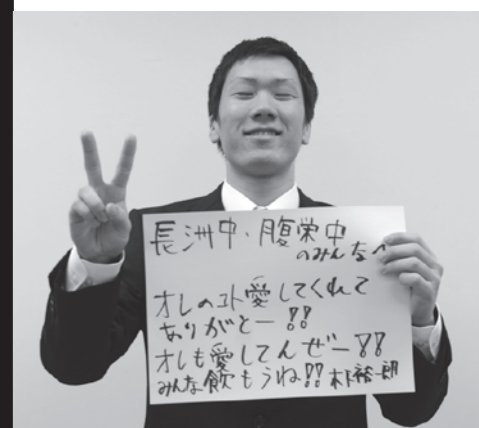 長洲中、腹栄中
のみんなへ
オレのコト愛してくれて
ありがとー!!
オレも愛してんぜー!!
みんな飲もうね!! 木下裕一朗